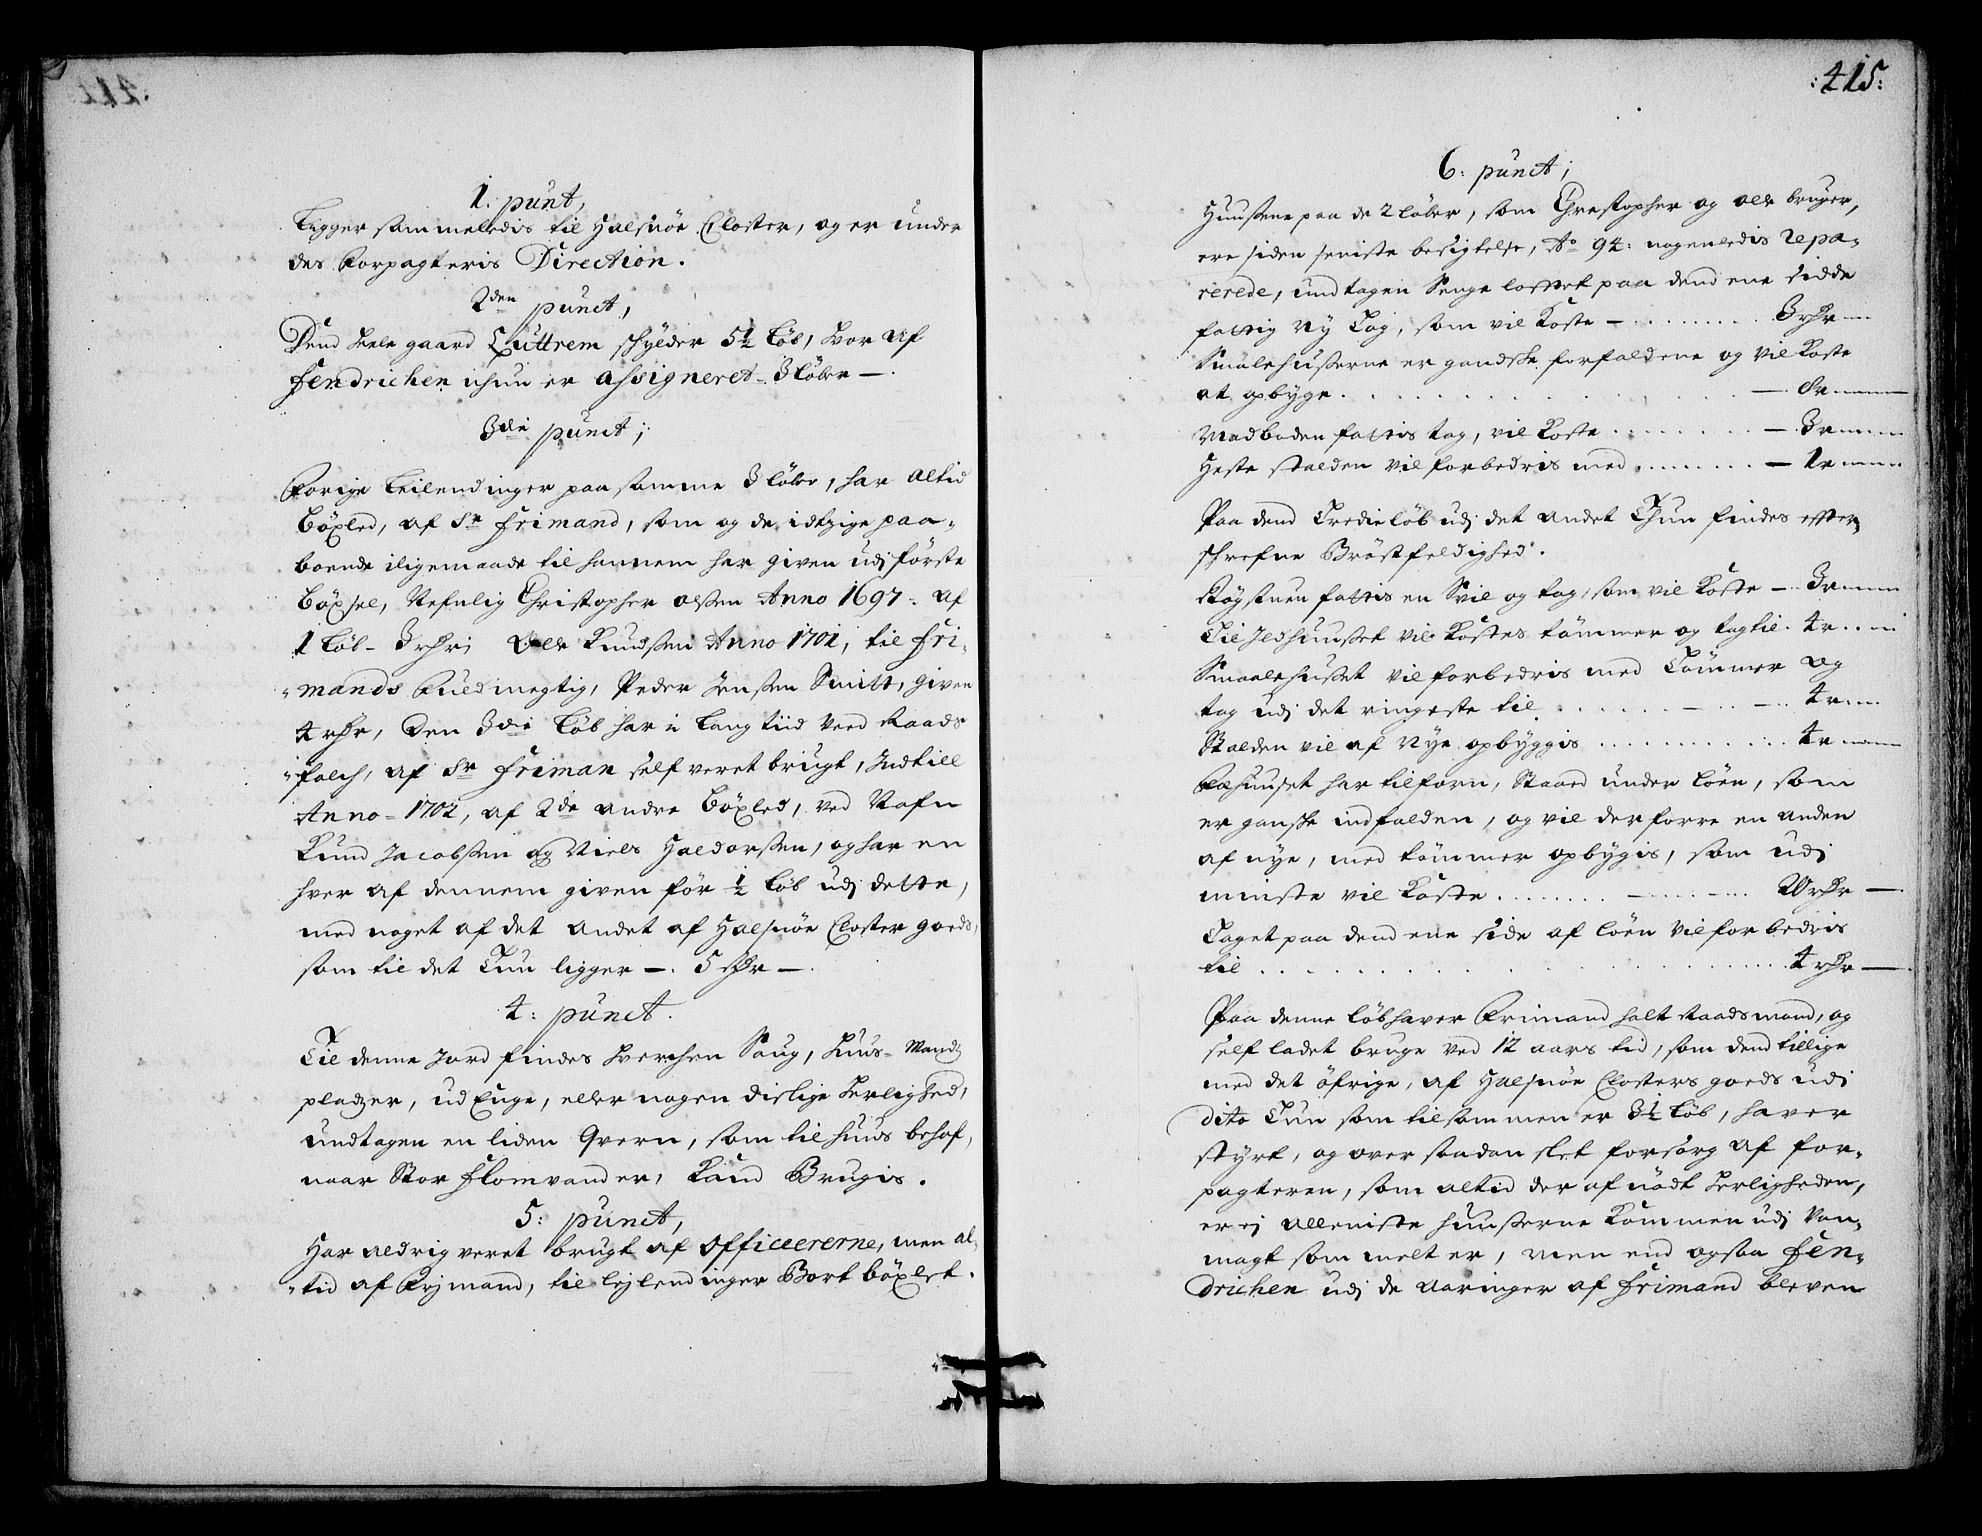 1. punt,
Ligger sammeledis til Halsnöe Closter, og er under
des Forpagteris Direction.
2den punct,
Dend heele gaard Quttrem schylder 5½ Löb, hvor af
fendrichen ichun er assigneret - 3 löber —.
3die punct;
Forige Leilendinger paa samme 3 löber, har altid
böxled, af Sr. frimand, som og de idtzige paa-
boende iligemaade til hannem har given udj förste
böxsel, Nefnlig Christopher olssen Anno 1697. af
1 löb - 3 rdr; Ole Knudssen Anno 1701, til fri-
mands Fuldmegtig, Peder Jenssen Smitt, given
4 rdr, Den 3die Löb har i Lang tiid Veed Raads-
folch, af Sr friman self veret brugt, Indtill
Anno - 1702, af 2de andre böxled, ved Nafn
Knud Jacobssen og Niels Haldorssen, og har en
hver af dennem given för ½ löb udj dette,
med noget af det andet af Halsnöe Closter goeds,
som til det Tun ligger —. 5 rdr —.
4: punct.
Til denne Jord findes hverchen Saug, Huus-Mandz
pladzer, ud Enge, eller nogen dislige herlighed,
undtagen en liden Qvern, som til huus behof,
naar Stor flomvand er, kand Brugis.
5: punct,
Har aldrig veret brugt af officererne, men al-
tid af Frjmand, til lejlendinger Bort böxlet.
:415:
6: punct;
Huussene paa de 2 löber, som Christopher og ole bruger,
ere siden seniste besigtelse, Ao 94: nogenledis repa-
rerede, undtagen Senge loftet paa dend ene sidde
fattig Ny Tag, som vil koste — 3 rdr —
Smalehusserne er gandske forfaldene og vil koste
at opbyge — 8 r
Madboden fattis tag, vil koste — 3 r
Heste stalden vil forbedris med — 1 r
Paa dend Tredie löb udj det andet Thun findes effter-
schrefne Bröstfeldighed.
Rögstuen fattis en Svil og tag, som vil koste — 3 r
Til Ildhuusset vil kostes tömmer og tag til. 4 r
Smaalehusset vil forbedris med Tömmer og
tag udj det ringeste til 4 r
Stalden vil af Nye opbyggis 4 r
Fæhuuset har tilforn, Staaed under löen, som
er ganske indfalden, og vil derforre en anden
af nye, med tömmer opbygis, som udj
minste vil koste rdr —
Taget paa dend ene side af löen vil forbedris
til 4 rdr —
Paa denne löb haver Frimand halt Raadsmand, og
self ladet bruge ved 12 aars tid, som dend tillige
med det öfrige, af Halsnöe Closters goeds udi
dito Tun som tilsammen er 3½ Löb, haver
styrt, og over saadan slet forsorg af for-
pagteren, som altid der af nödt herligheden,
er ej alleniste huusserne kommen udj Van-
magt som melt er, men end ogsaa fen-
drichen udj de aaringer af frimand bleven